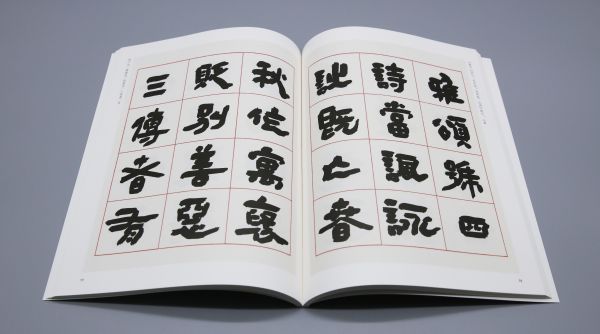 雅頌號四
詩當諷詠
詩既亡春
秋作寓褒
貶別善惡
三傳者有